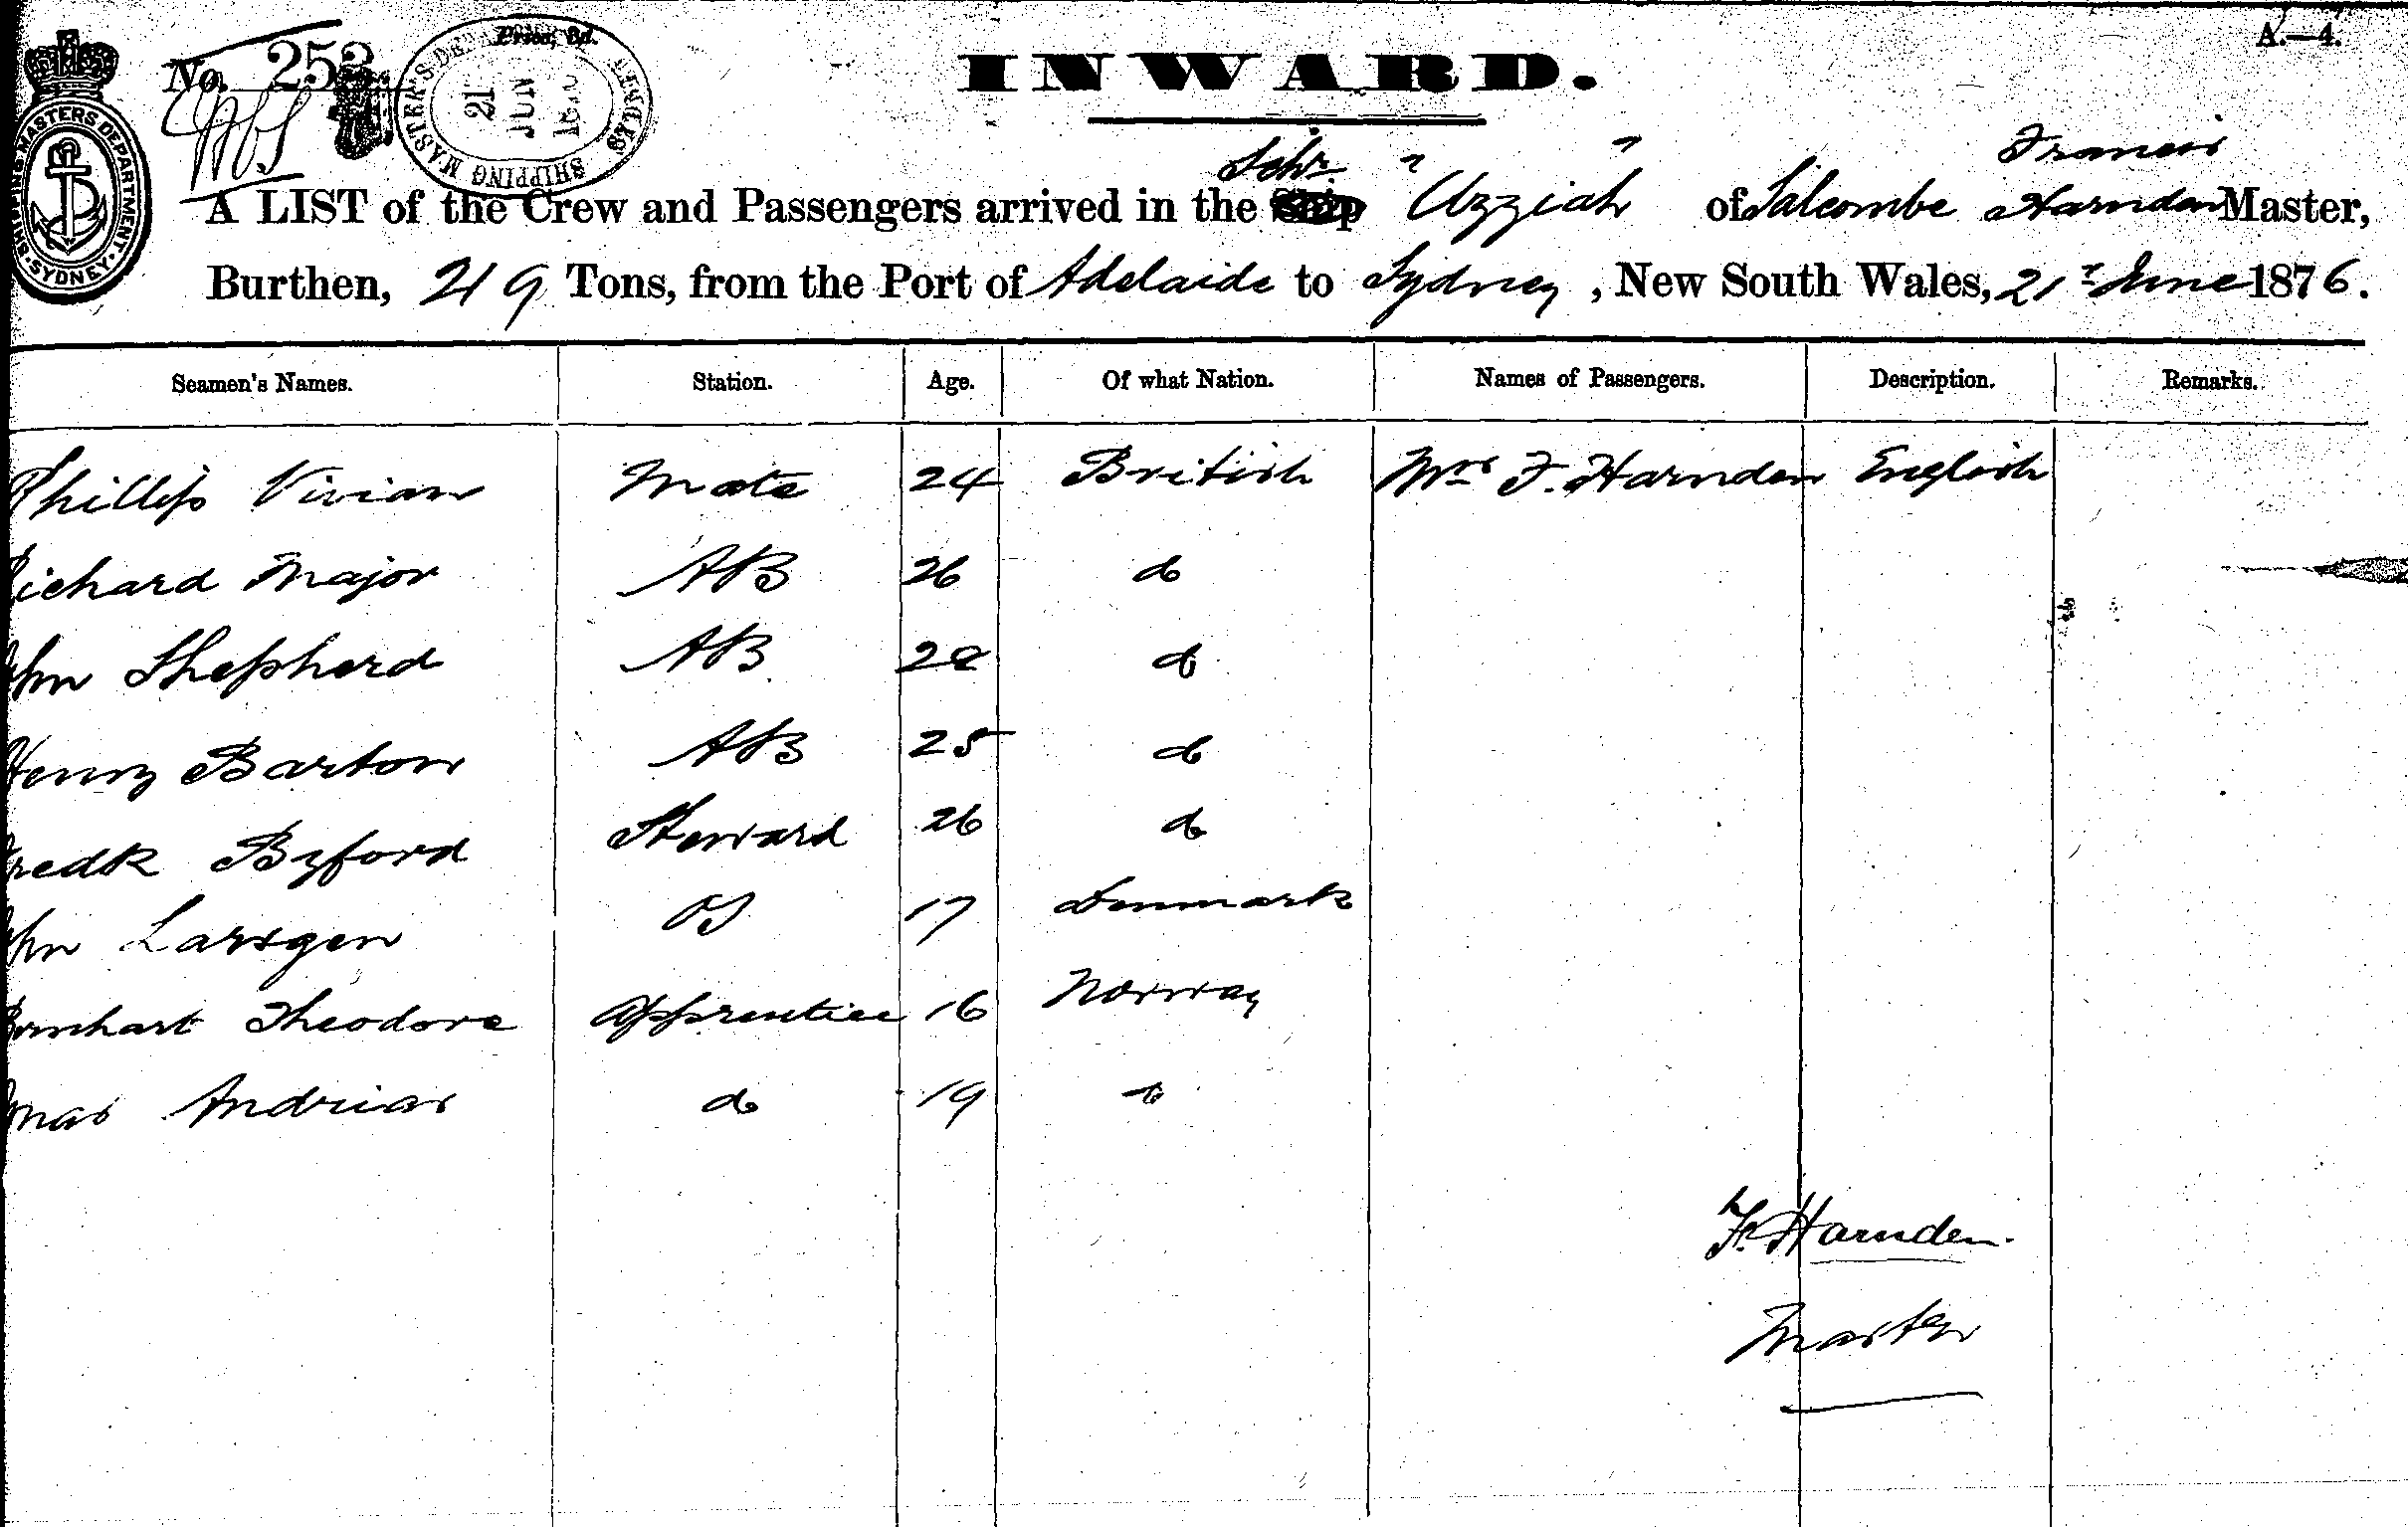 A.—4.
No. 253
Price, 3d.
SHIPPING MASTER'S DEPARTMENT SYDNEY
21 JUN
SHIPPING MASTERS DEPARTMENT SYDNEY
INWARD.
Schr. Francis
A LIST of the Crew and Passengers arrived in the Ship "Uzziah" of Salcombe Harnden Master,
Burthen, 219 Tons, from the Port of Adelaide to Sydney, New South Wales, 21st June 1876.
Seamen's Names. Station. Age. Of what Nation. Names of Passengers. Description. Remarks.
Phillip Vivian Mate 24 British Mrs F. Harnden English
Richard Major AB 26 do
John Shepherd AB 28 do
Henry Barton AB 25 do
Fredk Byford Steward 26 do
John Larsgen OS 17 Denmark
Bernhart Theodore Apprentice 16 Norway
Jonas Andrias do 19 do
F. Harnden.
Master